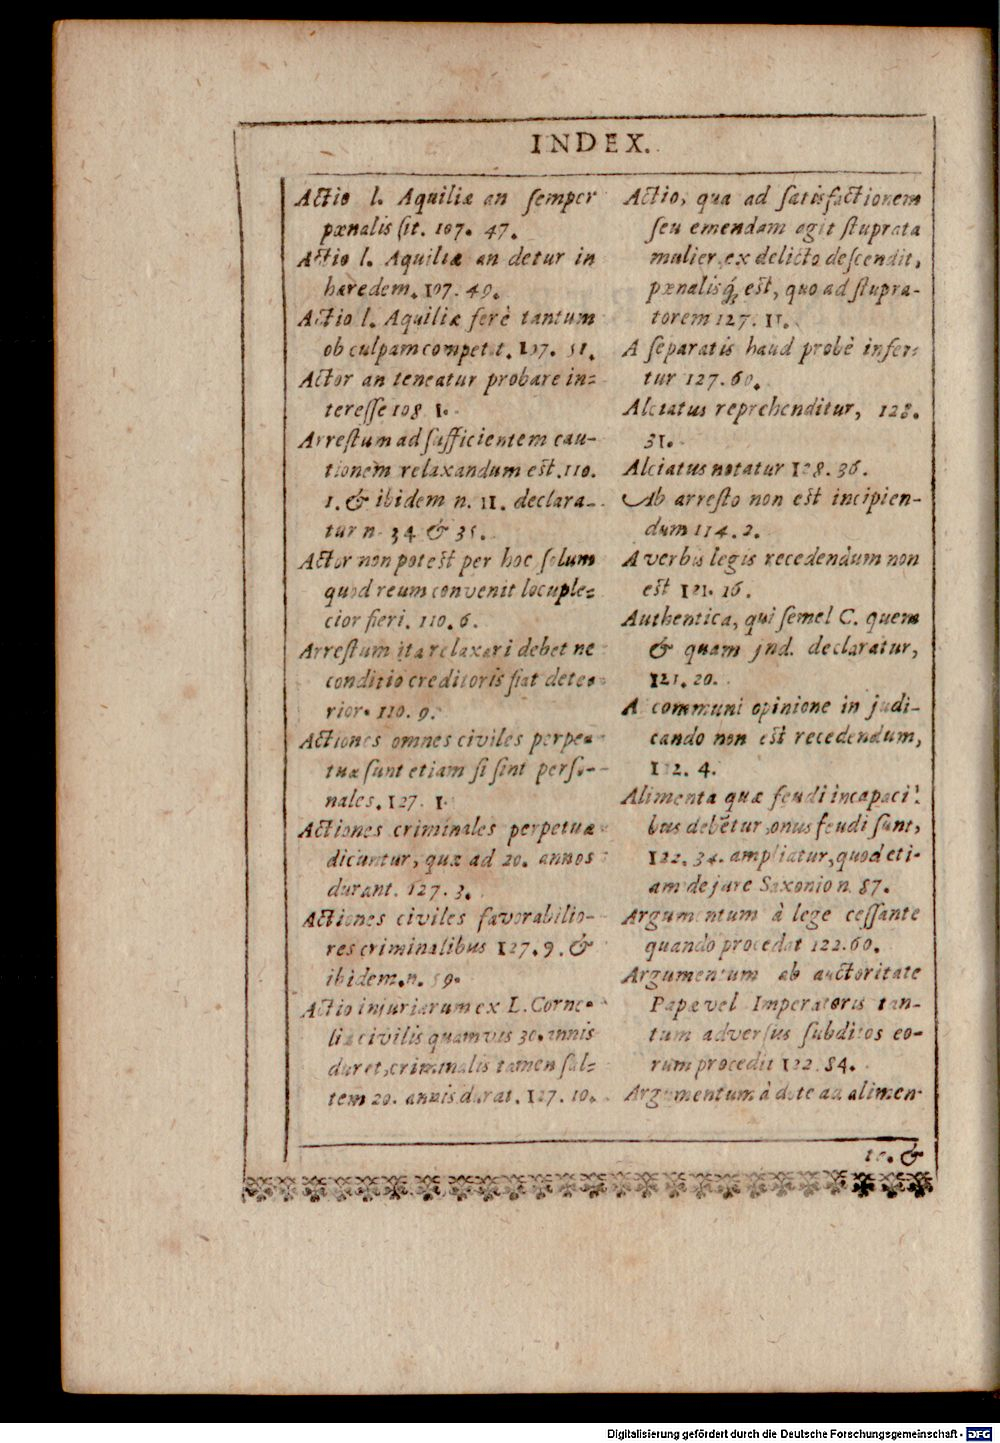 INDEX.
Actio l. Aquiliæ an semper
pœnalis sit. 107. 47.
Actio l. Aquiliæ an detur in
hæredem. 107. 49.
Actio l. Aquiliæ ferè tantum
ob culpam competit. 107. 51.
Actor an teneatur probare in-
teresse 108. 1.
Arrestum ad sufficientem cau-
tionem relaxandum est. 110.
1. & ibidem n. 11. declara-
tur n. 34 & 35.
Actor non potest per hoc solum
quod reum convenit locuple-
cior fieri. 110. 6.
Arrestum ita relaxari debet ne
conditio creditoris fiat dete-
rior. 110. 9.
Actiones omnes civiles perpe-
tuæ sunt etiam si sint perso-
nales. 127. 1.
Actiones criminales perpetuæ
dicuntur, quæ ad 20. annos
durant. 127. 3.
Actiones civiles favorabilio-
res criminalibus 127. 9. &
ibidem. n. 59.
Actio injuriarum ex L. Corne-
lia civilis quamvis 30. annis
duret, criminalis tamen sal-
tem 20. annis durat. 127. 10.
Actio, qua ad satisfactionem
seu emendam agit stuprata
mulier, ex delicto descendit,
pœnalisq́; est, quo ad stupra-
torem 127. 11.
A separatis haud probè infer-
tur 127. 60.
Alciatus reprehenditur, 128.
31.
Alciatus notatur 128. 36.
Ab arresto non est incipien-
dum 114. 2.
A verbis legis recedendum non
est 121. 16.
Authentica, qui semel C. quem
& quam jnd. declaratur,
121. 20.
A communi opinione in judi-
cando non est recedendum,
112. 4.
Alimenta quæ feudi incapaci-
bus debẽtur, onus feudi sunt,
122. 34. ampliatur, quod eti-
am de jure Saxonio n. 87.
Argumentum à lege cessante
quando procedat 122. 60.
Argumentum ab auctoritate
Papæ vel Imperatoris tan-
tum adversus subditos eo-
rum procedit 122. 84.
Argumentum à dote ad alimen-
ta. &
Digitalisierung gefördert durch die Deutsche Forschungsgemeinschaft - DFG